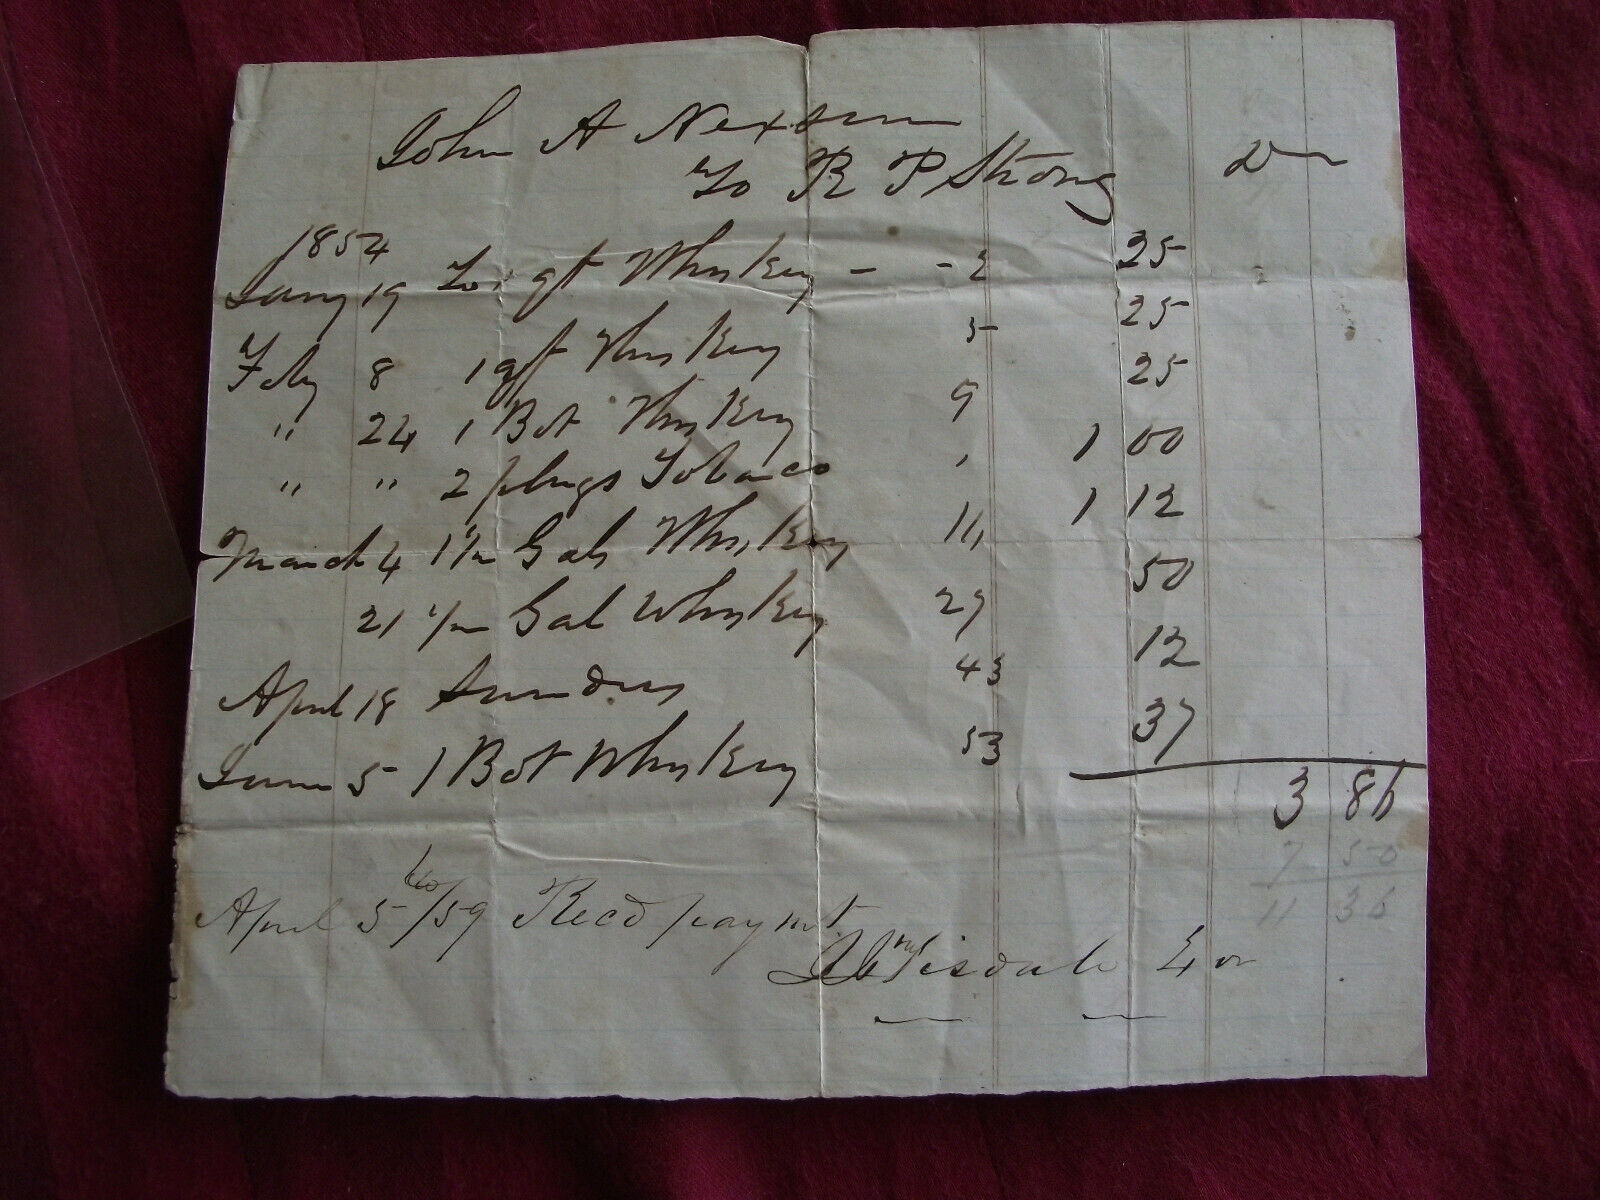 John A Nexsen
To R P Strong Dr
1854
Jany 19 To 1 qt Whiskey - - 2 25
Feby 8 1 qt Whiskey 5 25
" 24 1 Bot Whiskey 9 25
" " 2 plugs Tobacco , 1 00
March 4 1 1/2 Gals Whiskey 11 1 12
21 1/2 Gal Whiskey 29 50
April 18 Sundry 43 12
June 5 1 Bot Whiskey 53 37
3 86
7 50
11 36
April 5/59 Recd paymt
Tisdale